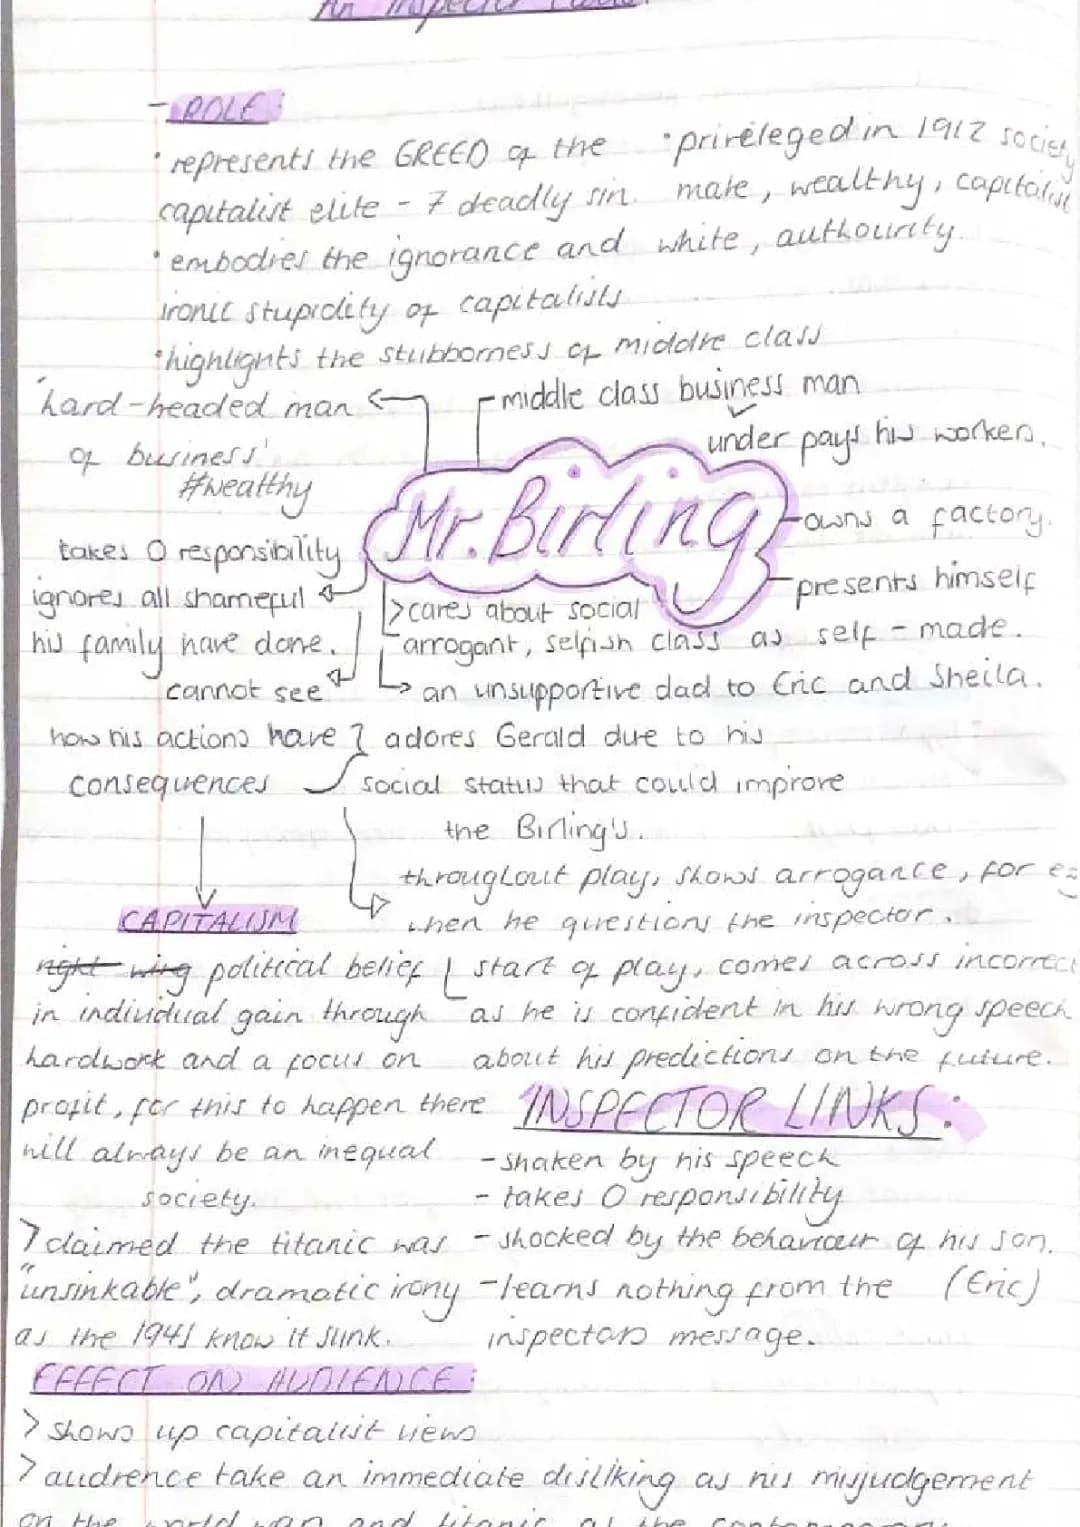 An Inspector Calls.
- ROLE:
• represents the GREED of the
capitalist elite - 7 deadly sin.
• embodies the ignorance and
ironic stupidity of capitalists
• highlights the stubborness of middle class
• privileged in 1912 society
male, wealthy, capitalist
white, authourity.
'hard-headed man
of business'
#wealthy
- middle class business man
under pays his workers.
Mr. Birling
- owns a factory.
- presents himself
as self - made.
takes 0 responsibility
ignores all shameful
his family have done.
> cares about social
class
- arrogant, selfish
↳ an unsupportive dad to Eric and Sheila.
cannot see
how his actions have
consequences
adores Gerald due to his
social status that could improve
the Birling's.
throughout play, shows arrogance, for eg
when he questions the inspector.
CAPITALISM
right wing political belief
in individual gain through
hardwork and a focus on
profit, for this to happen there
will always be an inequal
society.
> claimed the titanic was
"unsinkable", dramatic irony
as the 1945 know it sunk.
start of play, comes across incorrect
as he is confident in his wrong speech
about his predictions on the future.
INSPECTOR LINKS:
- shaken by his speech
- takes 0 responsibility
- shocked by the behaviour of his son.
(Eric)
- learns nothing from the
inspectors message.
EFFECT ON AUDIENCE:
> shows up capitalist views
> audience take an immediate disliking as his misjudgement
on the world war and titanic as the contemporary